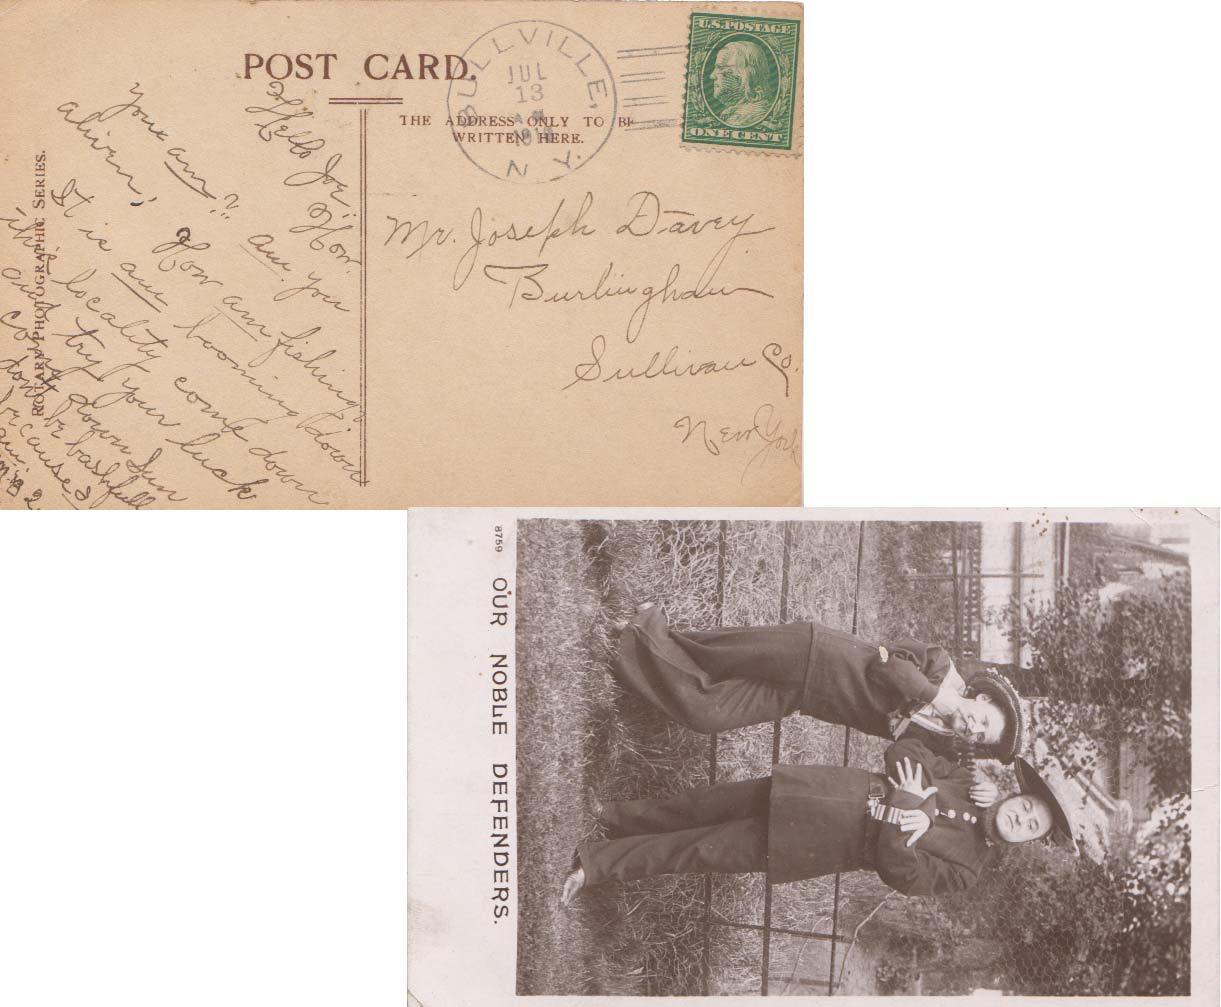 POST CARD.
THE ADDRESS ONLY TO BE
WRITTEN HERE.
BULLVILLE,
JUL
13
N.Y.
U.S. POSTAGE
ONE CENT
ROTARY PHOTOGRAPHIC SERIES.
Hello Joe:
How
am you
your am?
How am fishing?
It is am booming down
this locality come down
and try your luck
come down Sun
don't be bashfull
because I
am.
Mr. Joseph Davey
Burlingham
Sullivan Co.
New York
8759
OUR NOBLE DEFENDERS.